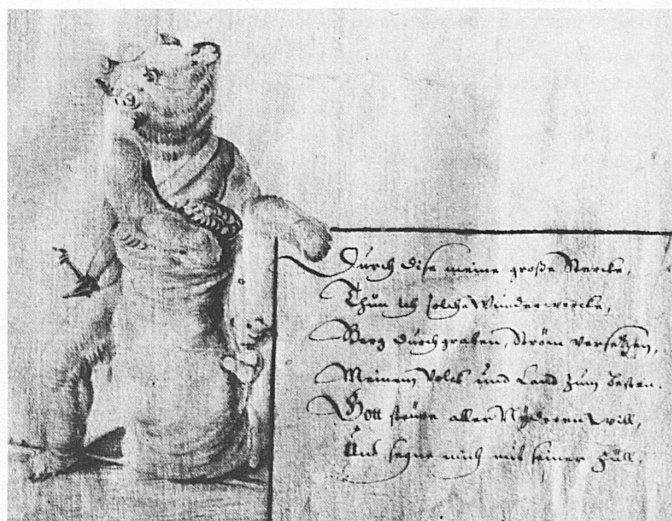 Durch dise meine große Stercke,
Thun ich solche Wunderwercke,
Berg durchgraben, Ström versetzen,
Meinem Volck und Land zum besten.
Gott steure aller Nyderen will,
Und segne mich mit seiner Füll.